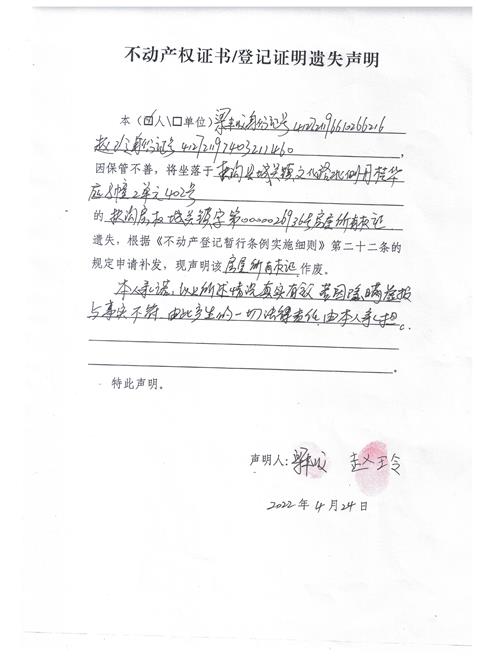 不动产权证书/登记证明遗失声明
本（☑人\□单位）梁 身份证号412721196610266216
赵 身份证号412721197403211460，
因保管不善，将坐落于扶沟县城关镇文化路北侧丹桂华
庭8幢2单元402号
的扶沟房权城关镇字第0000026936号房屋所有权证
遗失，根据《不动产登记暂行条例实施细则》第二十二条的
规定申请补发，现声明该房屋所有权证作废。
本人承诺，以上所述情况真实有效，若因隐瞒谎报
与事实不符，由此产生的一切法律责任，由本人承担。
特此声明。
声明人：梁 赵玉令
2022年4月24日